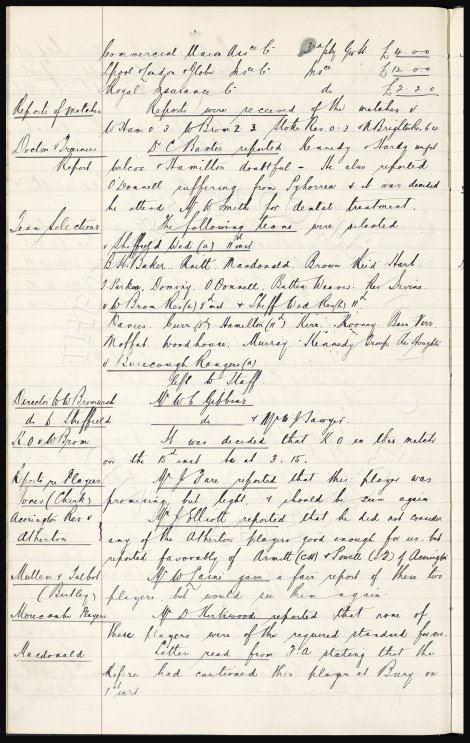 Commercial Union Assce Co £4.0.0
L'pool London & Globe Insce Co Insce £12.0.0
Royal Insurance Co do £2.2.0
Reports of matches Reports were received of the matches v
W Ham 0.3 W Brom 2.3 Stoke Res 0.3 N Brighton Res 6.4
Doctor & Trainers Dr C Baxter reported Kennedy & Hardy unfit
Report Wilcox & Hamilton doubtful - He also reported
O'Donnell suffering from Pyhorrea & it was decided
he attend Mr W Smith for dental treatment.
Team Selections The following teams were selected
v Sheffield Wed (a) 11th inst
B.H. Baker. Raitt. Macdonald. Brown Reid Hart.
Parker. Dominy. O'Donnell. Batten Weaver. Res Irvine.
v W Brom Res (h) 8th inst & Sheff Wed Res (h) 11th
Davies. Curr (8th) Hamilton (11th) Kerr. Rooney Bain Virr.
Moffat. Woodhouse. Murray. Kennedy Troup
v Burscough Rangers (a)
left to Staff
Director to W Bromwich Mr W C Gibbins
do to Sheffield. do & Mr W J Sawyer.
K.O v W Brom It was decided that K.O in this match
on the 15th inst be at 3.15.
Reports re Players Mr J Fare reported that this player was
Jones (Chirk) promising but light & should be seen again
Accrington Res v Mr J Elliott reported that he did not consider
Atherton any of the Atherton players good enough for us. but
reported favorably of Armitt (CH) & Powell of Accrington
Mullen & Talbot Mr W Caine gave a fair report of these two
(Birtley) players but would see them again.
Morecambe Players Mr D Kirkwood reported that none of
these players were of the required standard for us.
Macdonald Letter read from F.A stating that the
Referee had cautioned this player at Bury on
1st inst